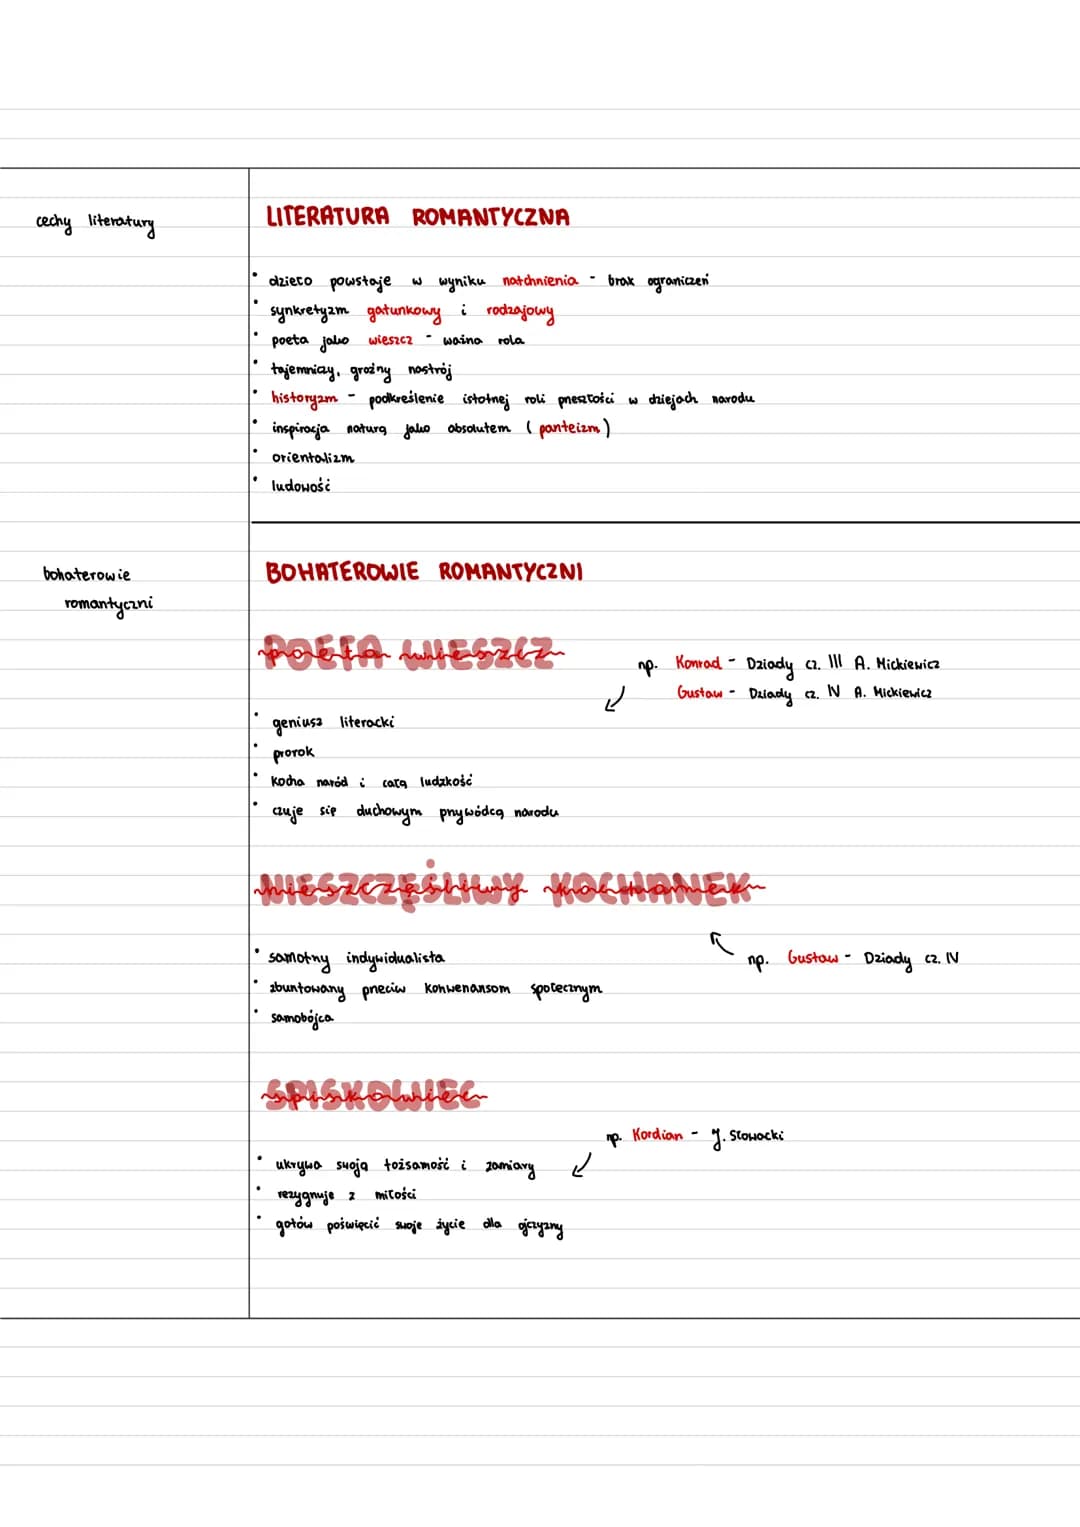 cechy literatury
LITERATURA ROMANTYCZNA
• dzieło powstaje w wyniku natchnienia - brak ograniczeń
• synkretyzm gatunkowy i rodzajowy
• poeta jako wieszcz - ważna rola
• tajemniczy, groźny nastrój
• historyzm - podkreślenie istotnej roli przeszłości w dziejach narodu
• inspiracja naturą jako absolutem (panteizm)
• orientalizm
• ludowość
bohaterowie
romantyczni
BOHATEROWIE ROMANTYCZNI
POETA WIESZCZ
poeta wieszcz
np. Konrad - Dziady cz. III A. Mickiewicz
Gustaw - Dziady cz. IV A. Mickiewicz
• geniusz literacki
• prorok
• kocha naród i całą ludzkość
• czuje się duchowym przywódcą narodu
NIESZCZĘŚLIWY KOCHANEK
nieszczęśliwy kochanek
np. Gustaw - Dziady cz. IV
• samotny indywidualista
• zbuntowany przeciw konwenansom społecznym
• samobójca
SPISKOWIEC
spiskowiec
np. Kordian - J. Słowacki
• ukrywa swoją tożsamość i zamiary
• rezygnuje z miłości
• gotów poświęcić swoje życie dla ojczyzny